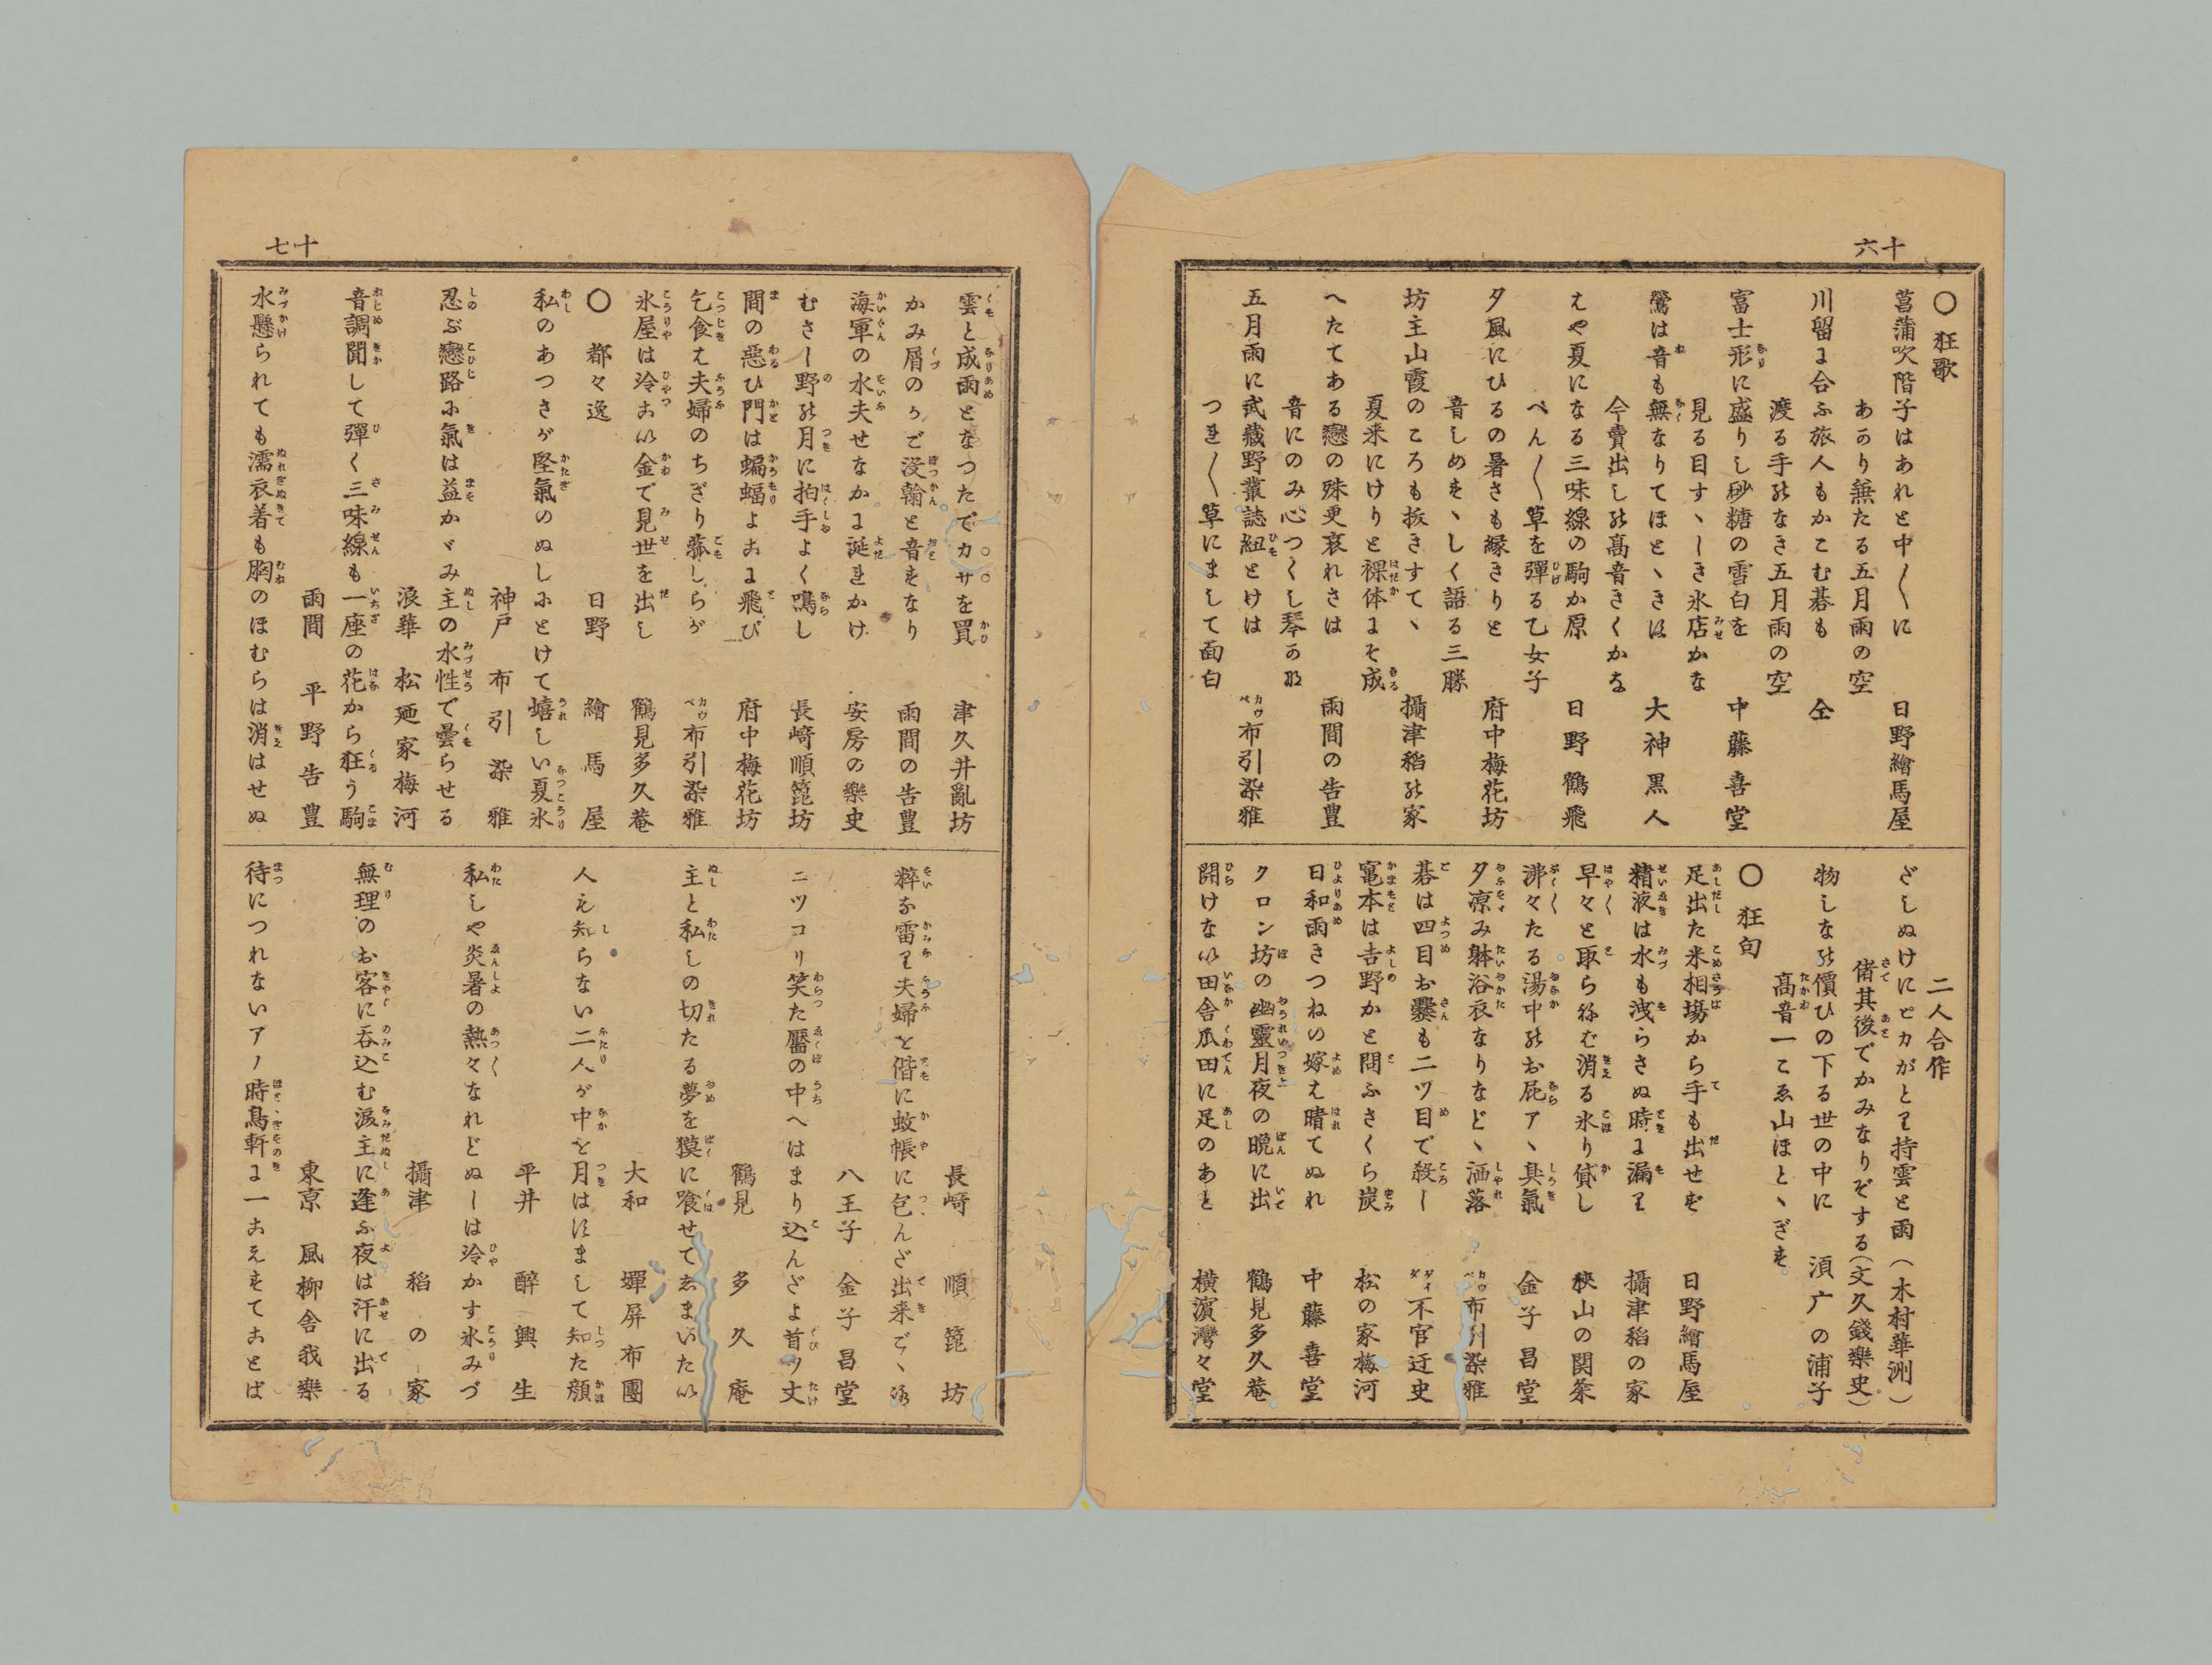 十六
○狂歌
菖蒲吹階子はあれと中〳〵に
あかり兼たる五月雨の空
日野繪馬屋
川留に合ふ旅人もかこむ碁も
渡る手のなき五月雨の空
仝
富士形に盛りし砂糖の雪白を
見る目すゝしき氷店かな
中藤喜堂
鶯は音も無なりてほとゝきは
今賣出しの高音きくかな
大神黒人
はや夏になる三味線の駒か原
べん〳〵草を彈る乙女子
日野鶴飛
夕風にひるの暑さも縁きりと
音しめもゝしく語る三勝
府中梅花坊
坊主山霞のころも抜きすてゝ
夏来にけりと裸体にそ成
攝津稻の家
へたてある戀の殊更哀れさは
音にのみ心つくし琴の
雨間の告豊
五月雨に武藏野叢誌紐とけは
つれ〳〵草にまして面白
カウベ布引染雅
二人合作
ざしぬけにピカがとり持雲と雨（木村華洲）
偖其後でかみなりぞする（文久錢樂史）
物しなの價ひの下る世の中に
高音一こゑ山ほとゝぎす。
須广の浦子
○狂句
足出た米相塲から手も出せず
日野繪馬屋
精液は水も洩らさぬ時に漏り
攝津稻の家
早々と取らねむ消る氷り貸し
狹山の関粂
沸々たる湯中のお屁アヽ臭氣
金子昌堂
夕凉み躰浴衣なりなどゝ洒落
カウベ布引染雅
碁は四目お爨も二ツ目で殺し
ダイダ不官迂史
竃本は吉野かと問ふさくら炭
松の家梅河
日和雨きつねの嫁え晴てぬれ
中藤喜堂
クロン坊の幽靈月夜の晩に出
鶴見多久菴
開けない田舎瓜田に足のあと
横濱灣々堂
十七
雲と成雨となつたでカサを買
津久井亂坊
かみ屑のかご没翰と音をなり
雨間の告豊
海軍の水夫せなかに涎をかけ
安房の樂史
むさし野の月に拍手よく鳴し
長﨑順箆坊
間の惡ひ門は蝙蝠よおに飛び
府中梅花坊
乞食も夫婦のちぎり菰しらが
カウベ布引染雅
氷屋は冷たい金で見世を出し
鶴見多久菴
○都々逸
日野　繪馬屋
私のあつさが堅氣のぬしにとけて嬉しい夏氷
神戸　布引染雅
忍ぶ戀路に氣は益かゞみ主の水性で曇らせる
浪華　松廼家梅河
音調聞して彈く三味線も一座の花から狂う駒
雨間　平野告豊
水懸られても濡衣着も胸のほむらは消はせぬ
長﨑　順箆坊
粹な雷り夫婦を偕に蚊帳に包んだ出来ごゝろ
八王子　金子昌堂
ニツコリ笑た靨の中へはまり込んだよ首ッ丈
鶴見　多久庵
主と私しの切れたる夢を獏に喰せてしまいたい
大和　嬋屏布團
人も知らない二人が中を月はすまして知た顔
平井　醉興生
私しや炎暑の熱々なれどぬしは冷かす氷みづ
攝津　稻の家
無理のお客に呑込む涙主に逢ふ夜は汗に出る
東京　風柳舎我樂
待につれないアノ時鳥軒に一こえもておとば